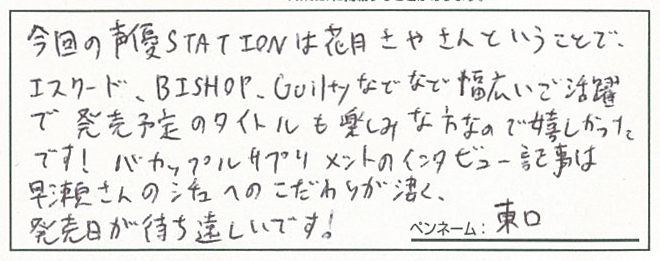 今回の声優STATIONは花月さやさんということで、
エスクード、BISHOP、Guiltyなどなど幅広いで活躍
で発売予定のタイトルも楽しみな方なので嬉しかった
です! バカップルサプリメントのインタビュー記事は
早瀬さんのシチュへのこだわりが凄く、
発売日が待ち遠しいです!
ペンネーム: 東口